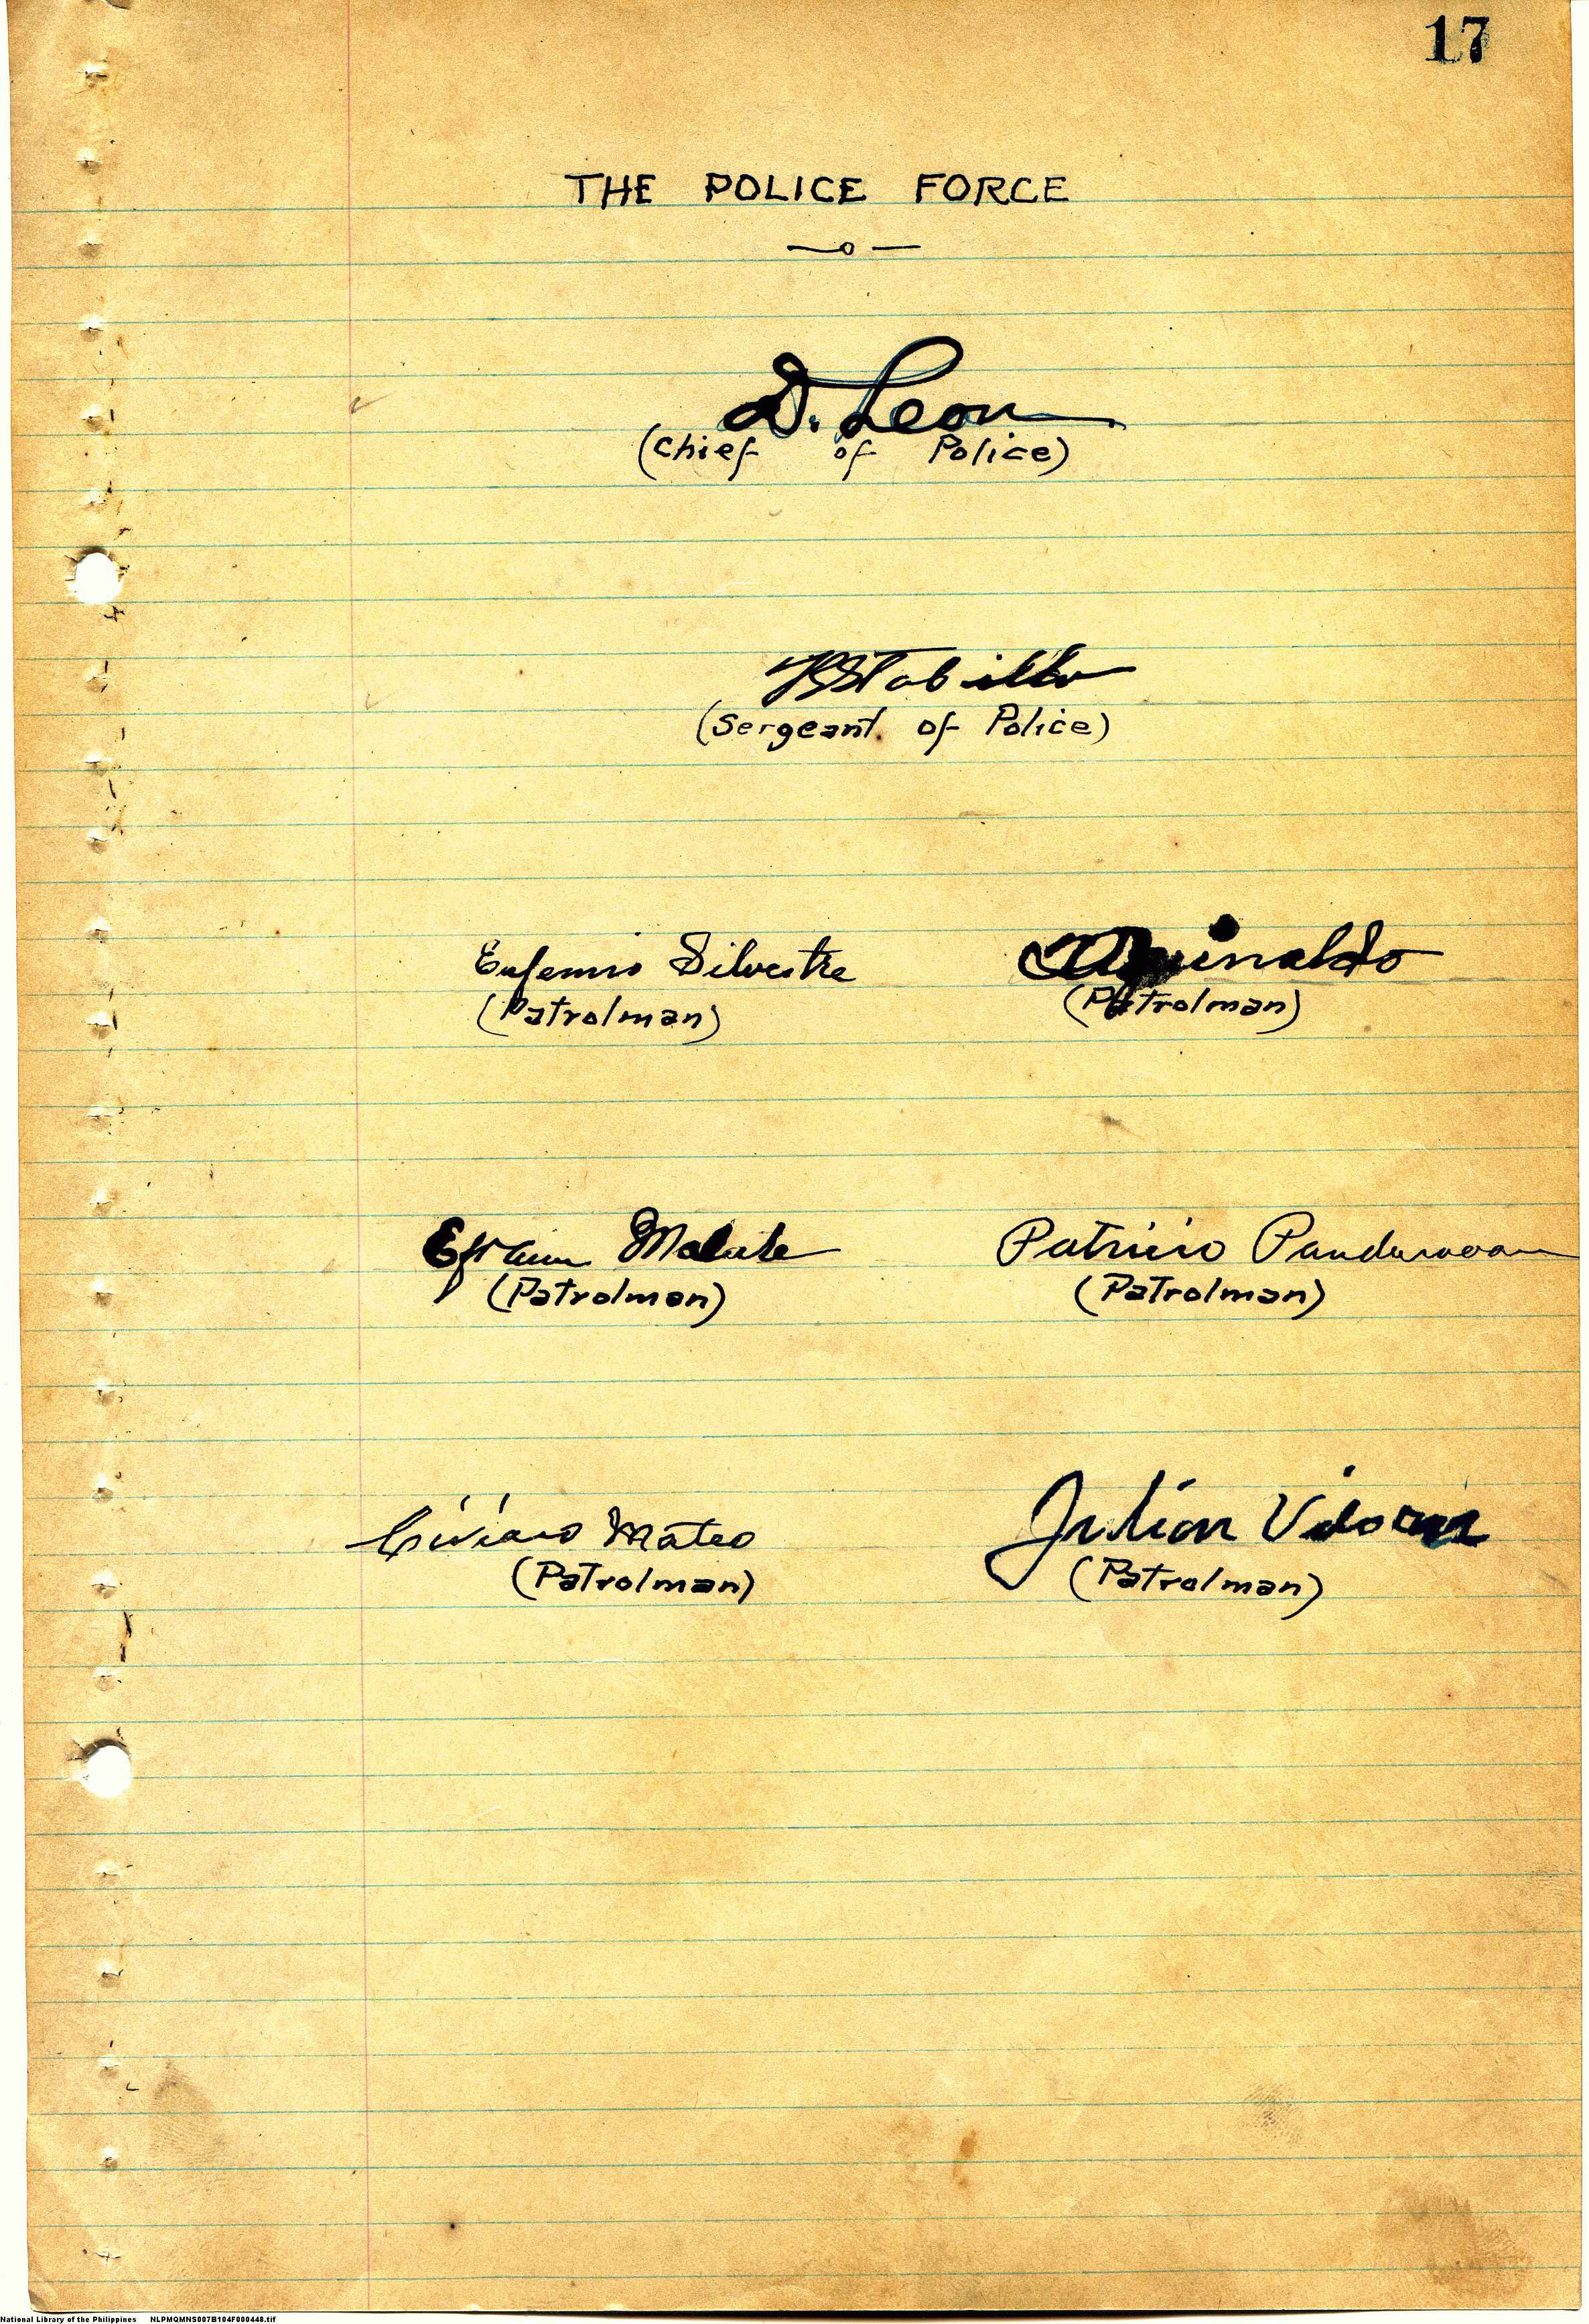 17
THE POLICE FORCE
D. Leon
(Chief of Police)
(Sergeant of Police)
Eufemio Silvestre
(Patrolman)
Aguinaldo
(Patrolman)
Efraim Malate
(Patrolman)
Patricio
(Patrolman)
Mateo
(Patrolman)
Julian
(Patrolman)
National Library of the Philippines NLPMQMNS007B104F000448.tif